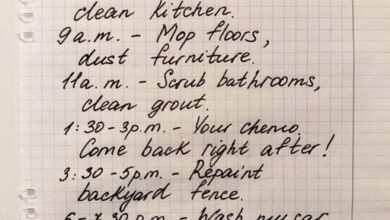 clean kitchen.
9a.m. - Mop floors,
dust furniture.
11a.m. - Scrub bathrooms,
clean grout.
1:30-3p.m. - Your chemo.
Come back right after!
3:30-5p.m. - Repaint
backyard fence.
6-7:30p.m. - Wash my car